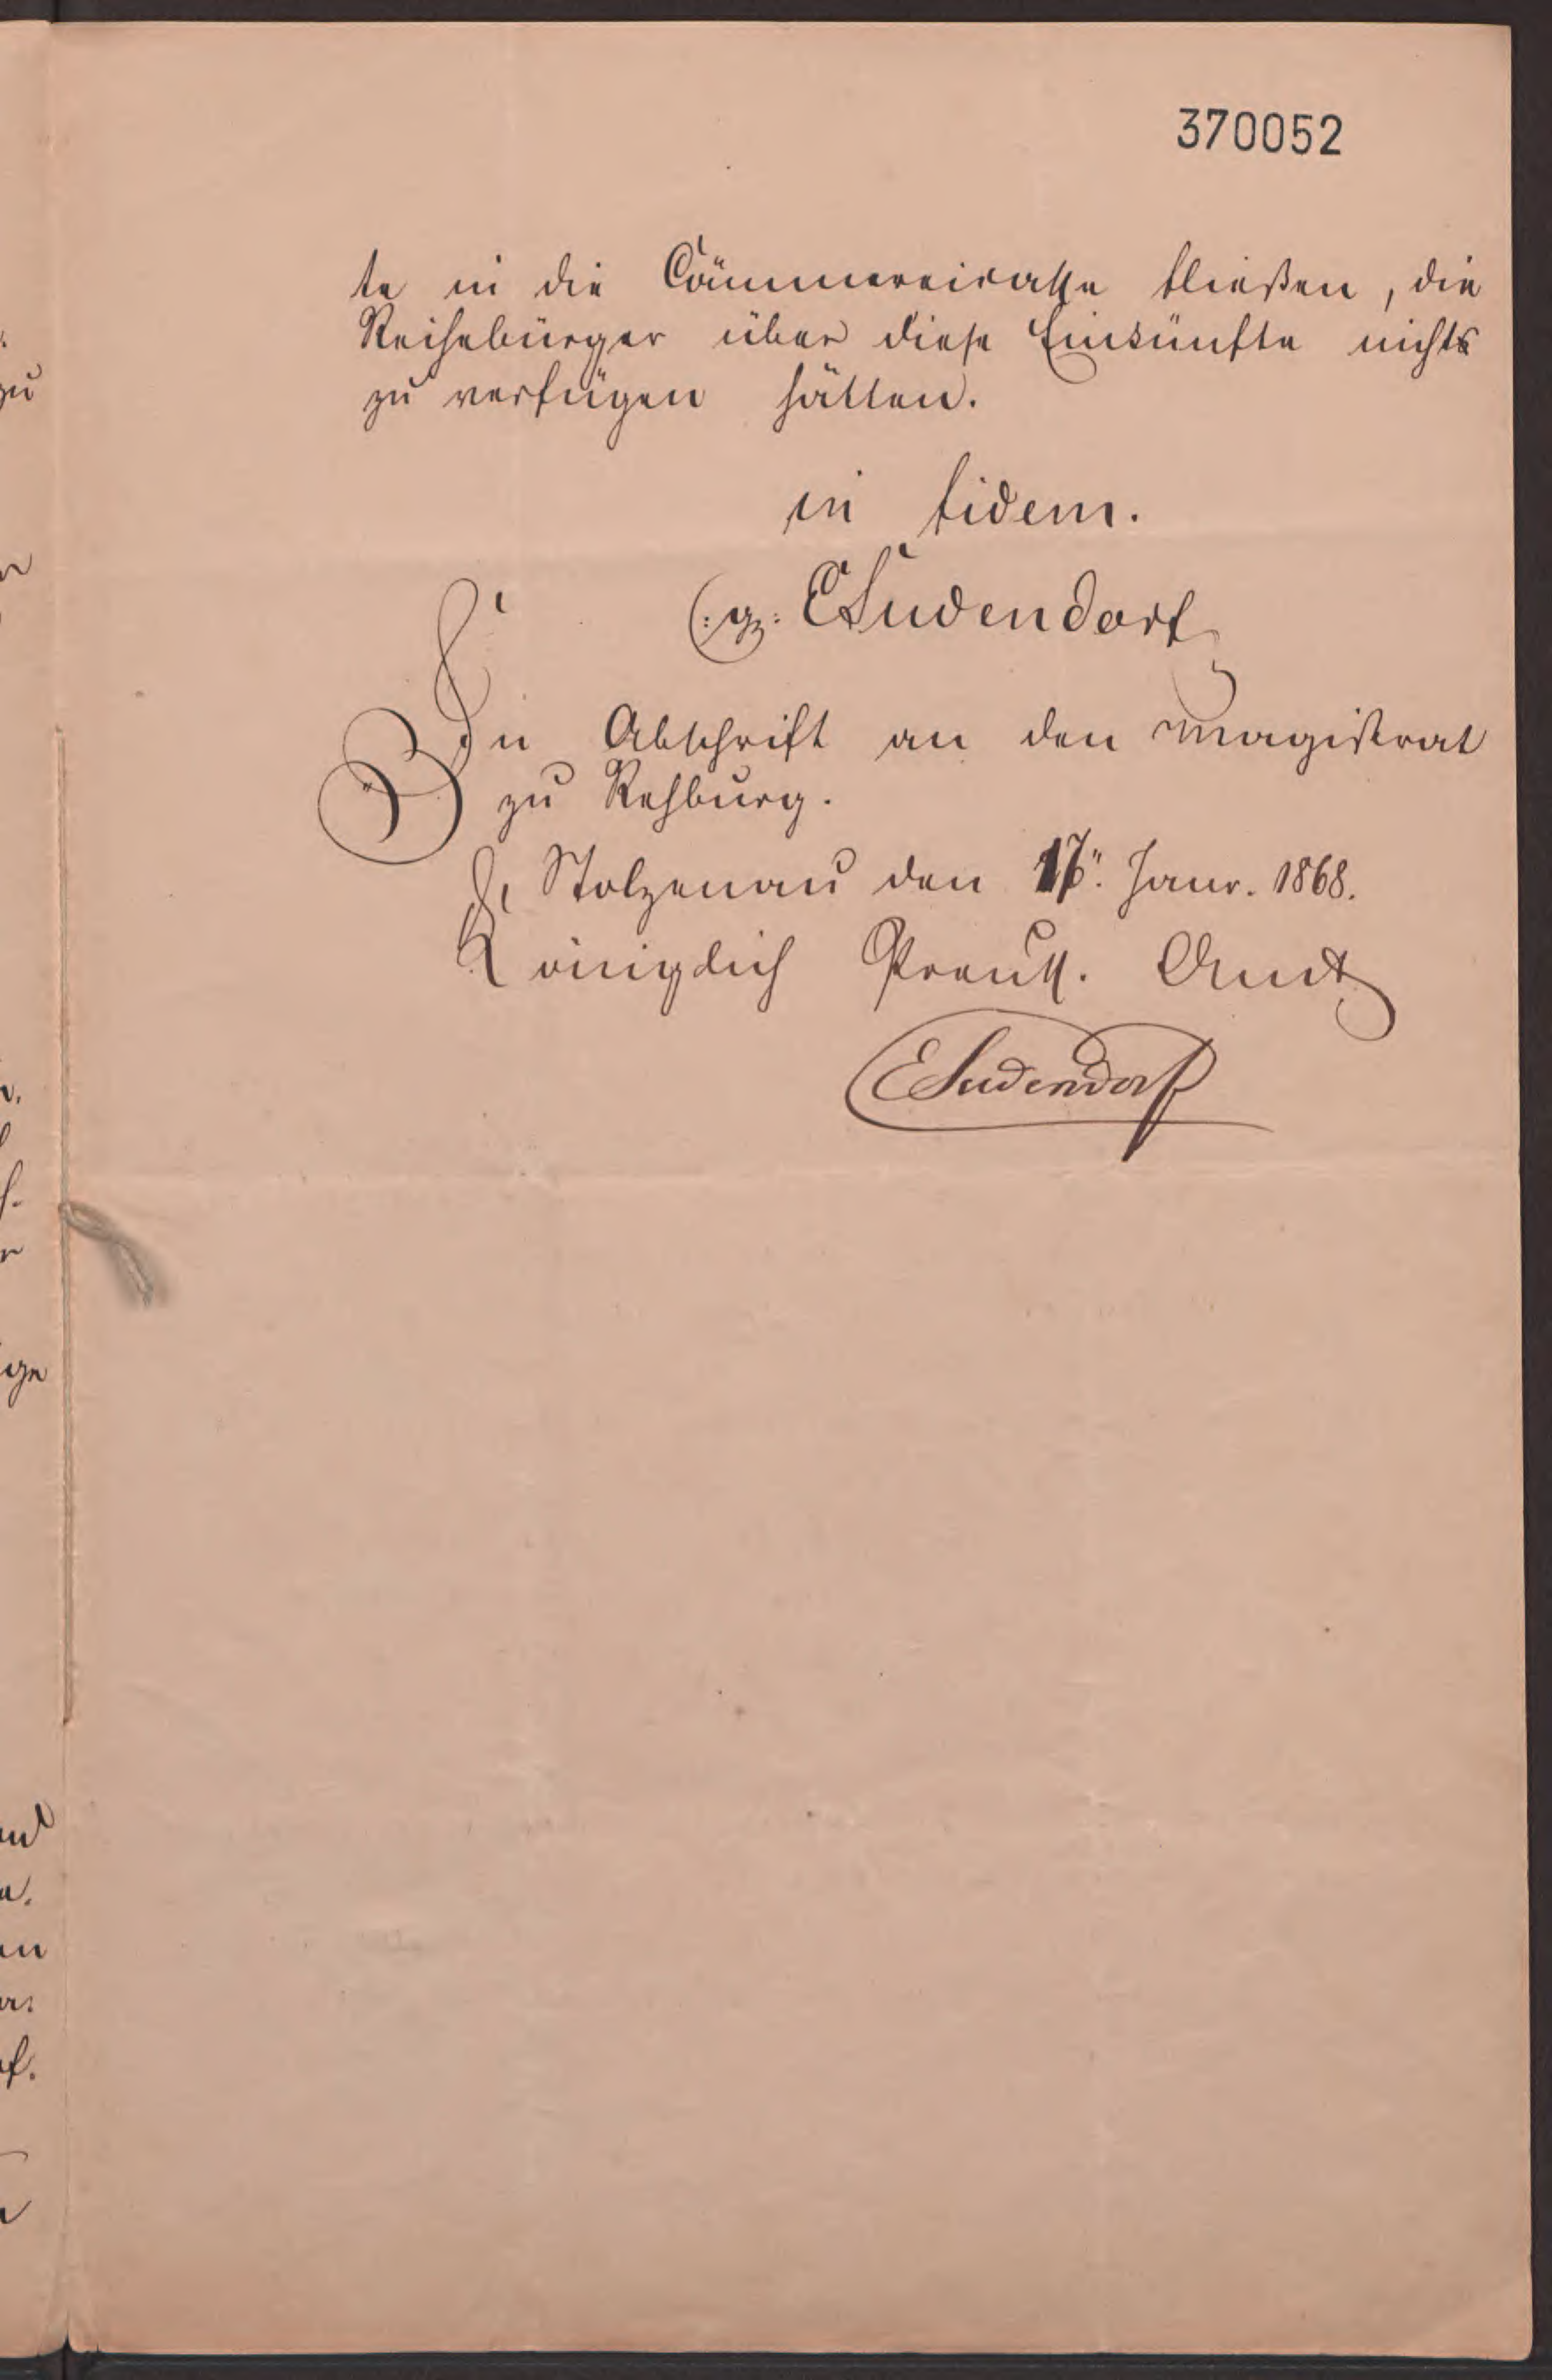 370052
te in die Cämmereicasse fließen, die
Reihebürger über diese Einkünfte nichts
zu verfügen hätten.
in fidem.
(:gz: ESudendorf
In Abschrift an den Magistrat
zu Rehburg.
Stolzenau den 17". Janr. 1868.
Königlich Preuß. Amt
ESudendorf